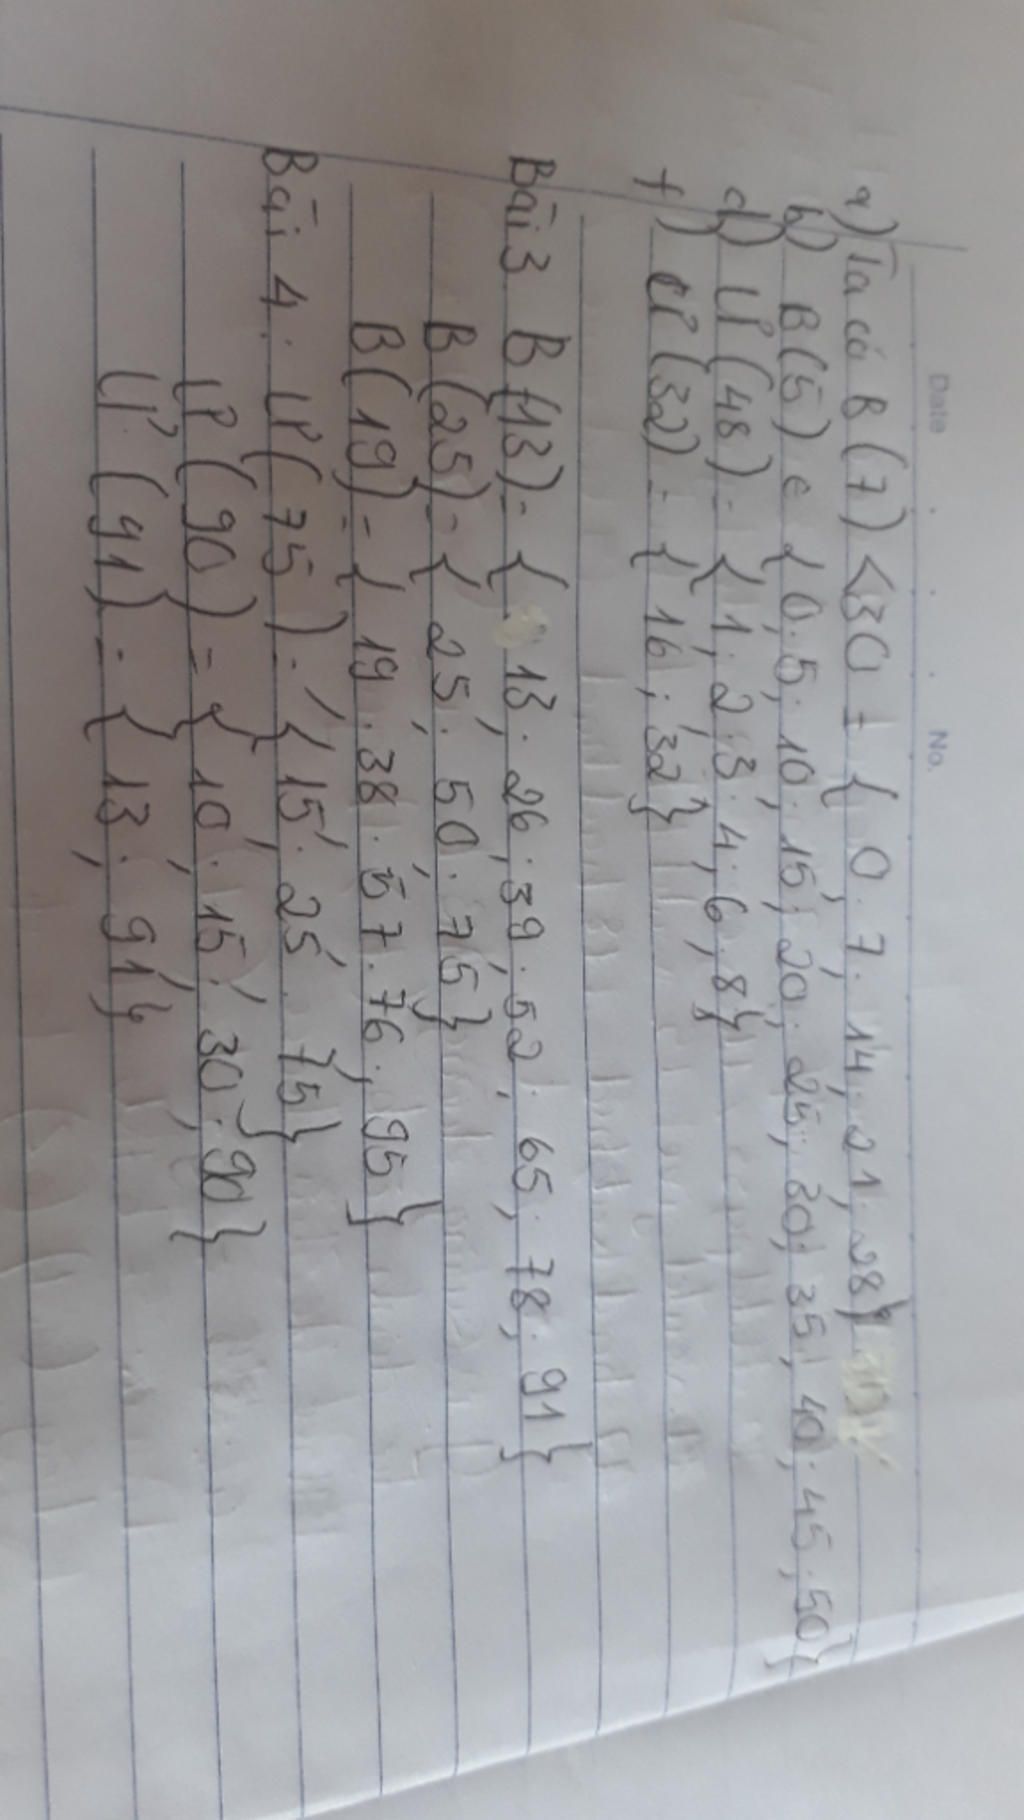 Date No.
a) Ta có B(7) < 30 = { 0; 7; 14; 21; 28}
b) B(5) e { 0; 5; 10; 15; 20; 25; 30; 35; 40; 45; 50}
d) Ư(48) = { 1; 2; 3; 4; 6; 8}
f) Ư(32) = { 16; 32}
Bài 3 B(13) = { 13; 26; 39; 52; 65; 78; 91}
B(25) = { 25; 50; 75}
B(19) = { 19; 38; 57; 76; 95}
Bài 4: Ư(75) = { 15; 25; 75}
Ư(90) = { 10; 15; 30; 90}
Ư(91) = { 13; 91}